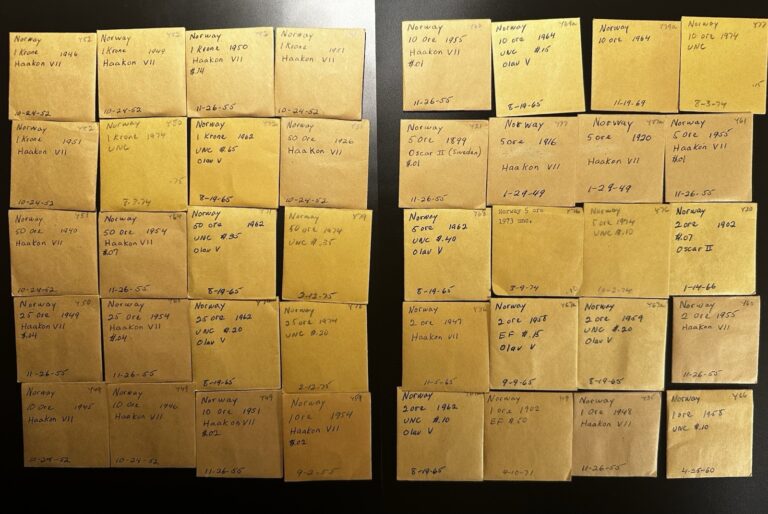 Norway Y52
1 Krone 1946
Haakon VII
10-24-52
Norway Y52
1 Krone 1949
Haakon VII
10-24-52
Norway Y52
1 Krone 1950
Haakon VII
$.14
11-26-55
Norway
1 Krone 1951
Haakon VII
10-24-52
Norway Y52
1 Krone
1951
Haakon VII
10-24-52
Norway
1 Krone 1974
UNC
.75
Norway
1 Krone 1962
UNC $.65
Olav V
8-19-65
Norway
50 Ore 1926
Haakon VII
10-24-52
Norway
50 Ore 1940
Haakon VII
10-24-52
Norway
50 Ore 1954
Haakon VII
$.07
11-26-55
Norway
50 ore 1962
UNC $.35
Olav V
8-19-65
Norway
50 ore 1974
UNC $.35
2-12-75
Norway Y50
25 Ore 1949
Haakon VII
$.04
11-26-55
Norway
25 Ore 1954
Haakon VII
$.04
11-26-55
Norway
25 ore 1962
UNC $.20
Olav V
8-19-65
Norway
25 ore 1974
UNC $.20
2-12-75
Norway Y49
10 Ore 1945
Haakon VII
Norway Y49
10 Ore 1946
Haakon VII
10-24-52
Norway Y49
10 Ore 1951
Haakon VII
$.02
11-26-55
Norway
1 Ore 1954
Haakon VII
$.02
9-2-55
Norway
10 Ore 1955
Haakon VII
$.01
11-26-55
Norway
10 ore 1964
UNC $.15
Olav V
8-19-65
Norway
10 ore 1964
11-19-69
Norway
10 ore 1974
UNC
.15
8-3-74
Norway
5 Ore 1899
Oscar II (Sweden)
$.01
11-26-55
Norway
5 ore 1916
Haakon VII
1-29-49
Norway
5 ore 1920
Haakon VII
1-29-49
Norway
5 Ore 1955
Haakon VII
$.01
11-26-55
Norway
5 ore 1962
UNC $.40
Olav V
8-19-65
Norway 5 ore
1973 unc.
Norway Y76
5 ore 1974
UNC $.10
Norway Y20
2 ore 1902
$.07
Oscar II
1-14-66
Norway
2 ore 1947
Haakon VII
11-5-65
Norway
2 ore 1958
EF $.15
Olav V
9-9-65
Norway
2 ore 1959
UNC $.20
Olav V
8-19-65
Norway
2 Ore 1955
Haakon VII
11-26-55
Norway
2 ore 1962
UNC $.10
Olav V
8-19-65
Norway
1 ore 1902
EF $.50
9-10-71
Norway
1 Ore 1948
Haakon VII
11-26-55
Norway Y66
1 ore 1958
UNC $.10
4-25-60